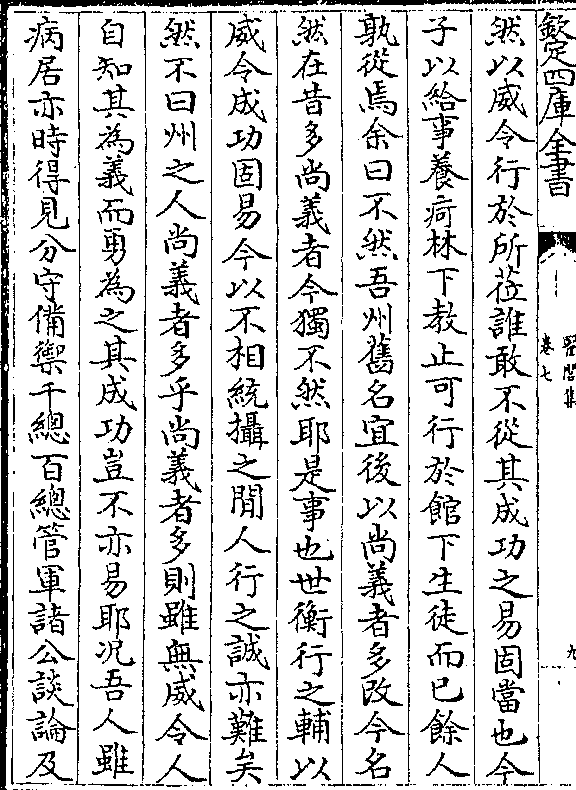 欽定四庫全書
醫閭集
卷七
九
然以威令行於所莅誰敢不從其成功之易固當也今
子以給事養疴林下教止可行於館下生徒而已餘人
孰從焉余曰不然吾州舊名宜後以尚義者多改今名
然在昔多尚義者今獨不然耶是事也世衡行之輔以
威令成功固易今以不相統攝之間人行之誠亦難矣
然不曰州之人尚義者多乎尚義者多則雖無威令人
自知其為義而勇為之其成功豈不亦易耶况吾人雖
病居亦時得見分守備禦千總百總管軍諸公談論及